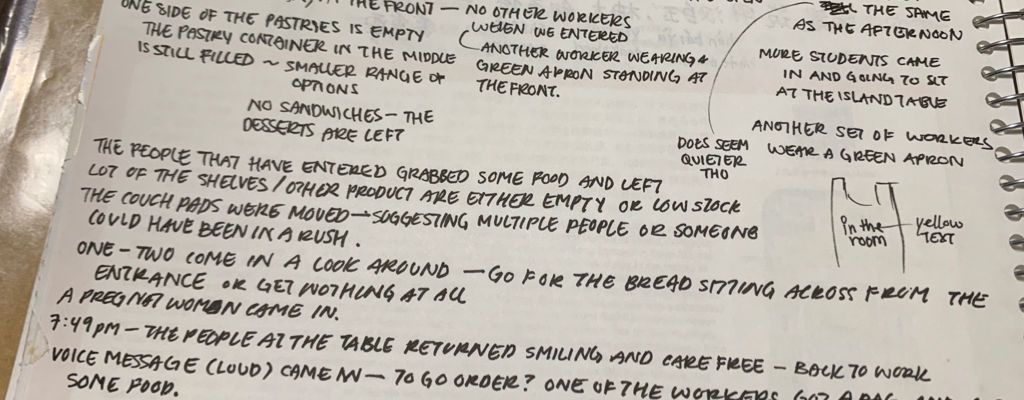 THE FRONT — NO OTHER WORKERS
WHEN WE ENTERED
ANOTHER WORKER WEARING A
GREEN APRON STANDING AT
THE FRONT.
ONE SIDE OF THE PASTRYES IS EMPTY
THE PASTRY CONTAINER IN THE MIDDLE
IS STILL FILLED ~ SMALLER RANGE OF
OPTIONS
NO SANDWICHES — THE
DESSERTS ARE LEFT
THE SAME
AS THE AFTERNOON
MORE STUDENTS CAME
IN AND GOING TO SIT
AT THE ISLAND TABLE
ANOTHER SET OF WORKERS
WEAR A GREEN APRON
DOES SEEM
QUIETER
THO
in the
room
yellow
TEXT
THE PEOPLE THAT HAVE ENTERED GRABBED SOME FOOD AND LEFT
LOT OF THE SHELVES / OTHER PRODUCT ARE EITHER EMPTY OR LOW STOCK
THE COUCH PADS WERE MOVED → SUGGESTING MULTIPLE PEOPLE OR SOMEONE
COULD HAVE BEEN IN A RUSH.
ONE - TWO COME IN A LOOK AROUND — GO FOR THE BREAD SITTING ACROSS FROM THE
ENTRANCE OR GET NOTHING AT ALL
A PREGNET WOMEN CAME IN.
7:49 PM — THE PEOPLE AT THE TABLE RETURNED SMILING AND CARE FREE — BACK TO WORK
VOICE MESSAGE (LOUD) CAME IN — TO GO ORDER? ONE OF THE WORKERS GOT A BAG AND
SOME FOOD.